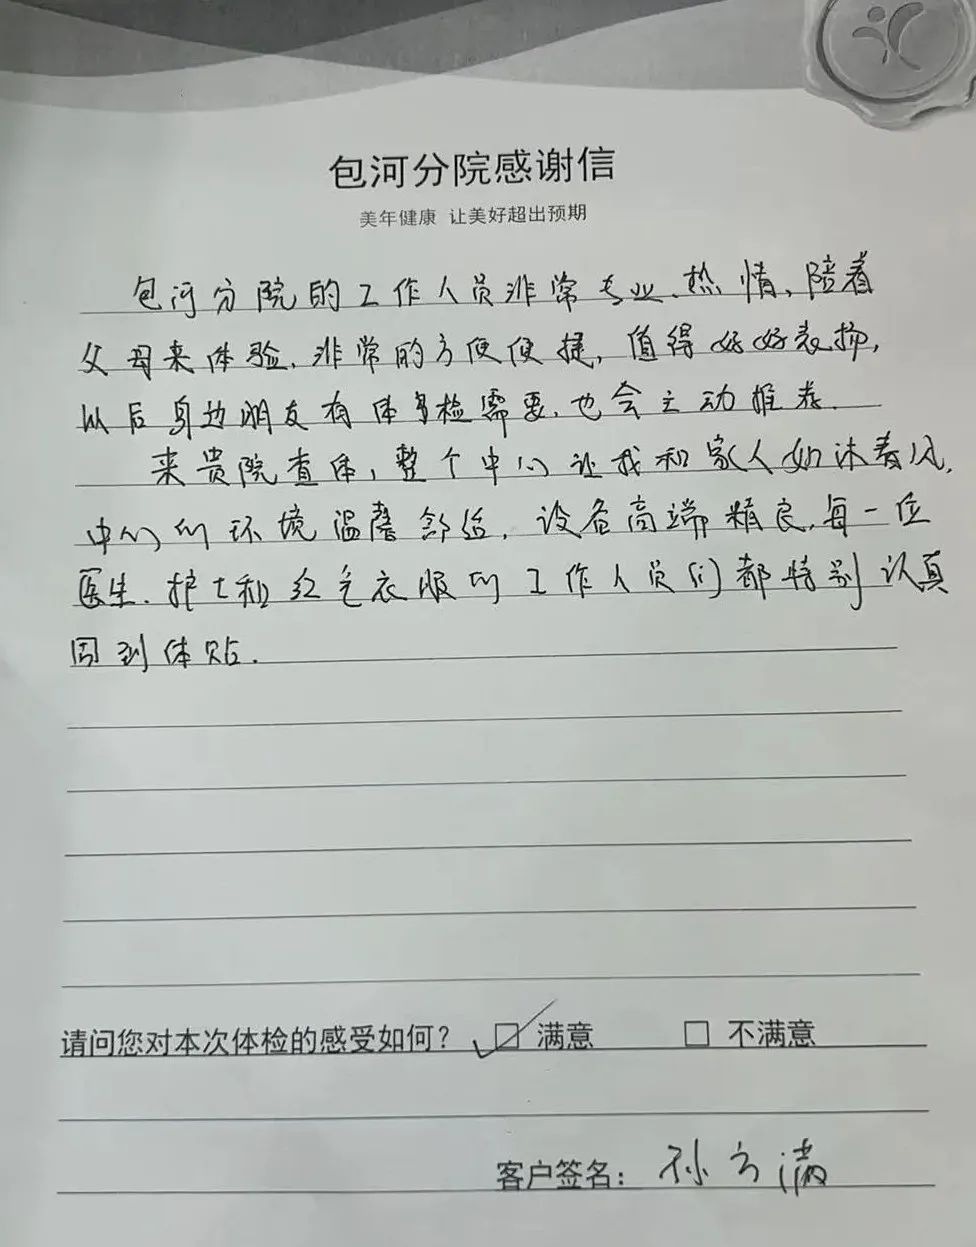 包河分院感谢信
美年健康 让美好超出预期
包河分院的工作人员非常专业、热情、陪着
父母来体验,非常的方便便捷,值得好好表扬,
以后身边朋友有体检需要,也会主动推荐.
来贵院查体,整个中心让我和家人如沐春风,
中心的环境温馨舒适,设备高端精良,每一位
医生、护士和红色衣服的工作人员们都特别认真
周到体贴.
请问您对本次体检的感受如何? ☑ 满意 □ 不满意
客户签名: 孙方满